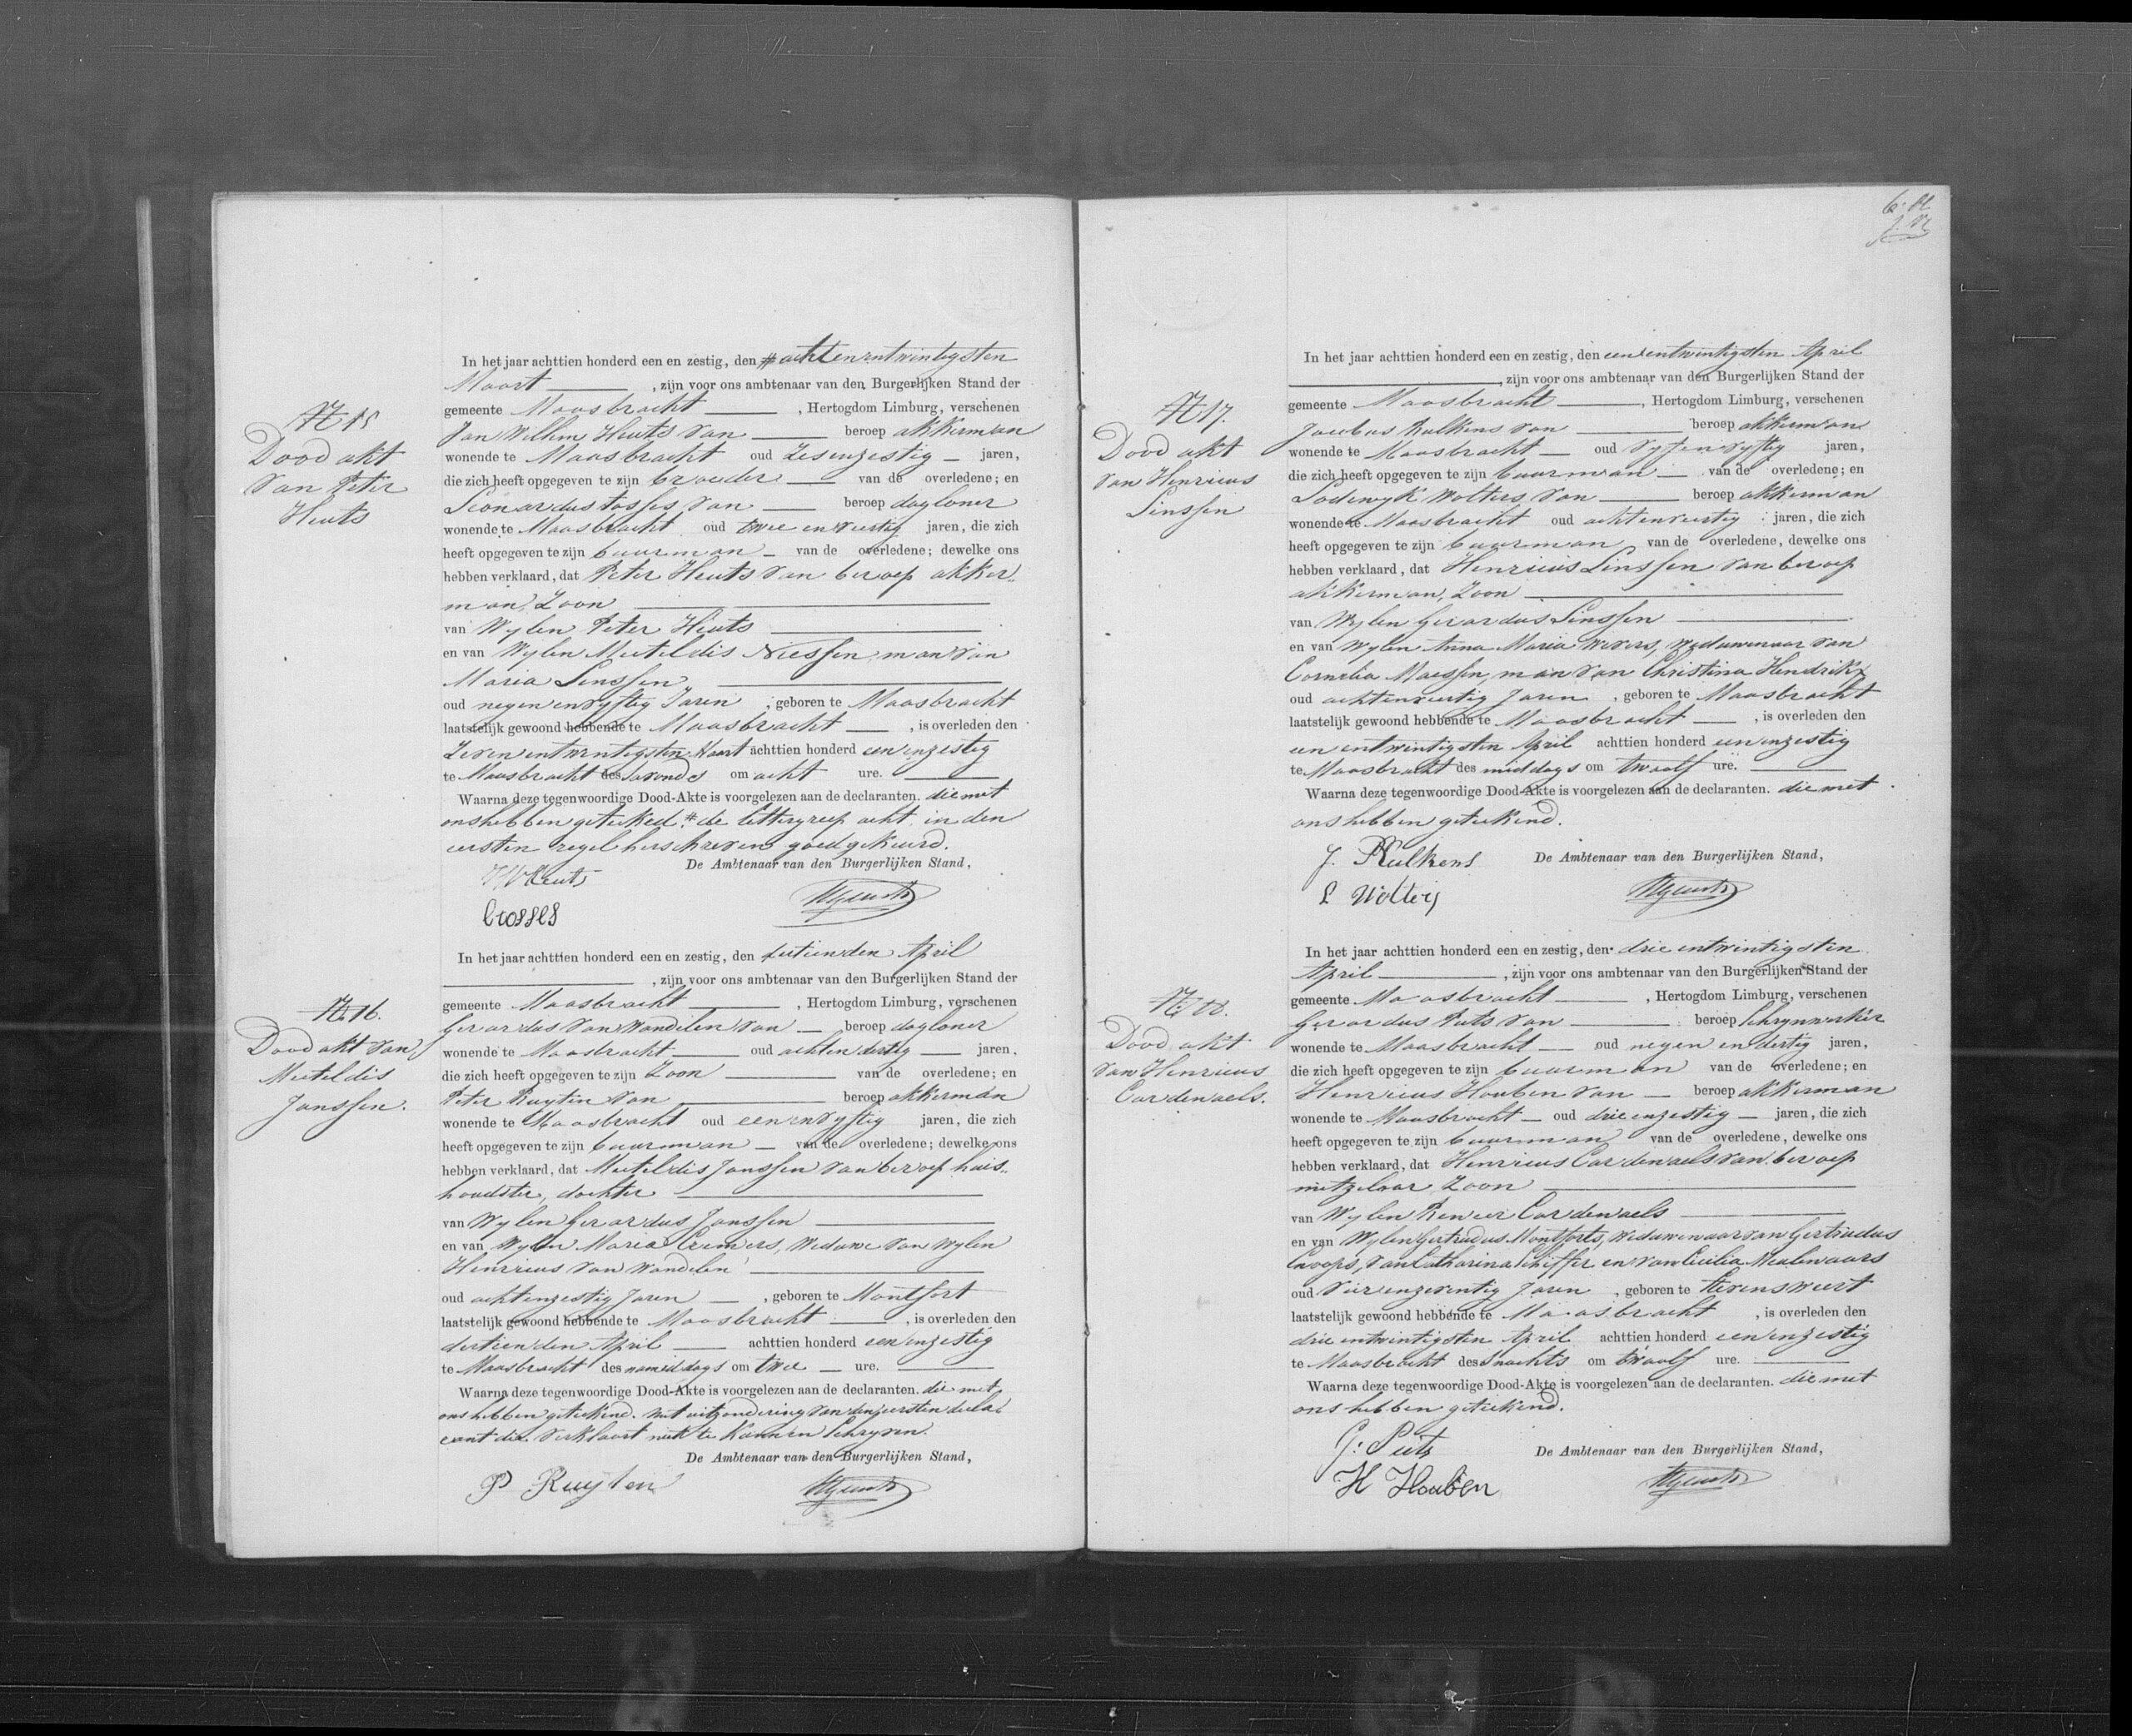 N 15
Dood akt
van Peter
Heuts
In het jaar achttien honderd een en zestig, den # achtenentwintigsten
Maart , zijn voor ons ambtenaar van den Burgerlijken Stand der
gemeente Maasbracht , Hertogdom Limburg, verschenen
Jan Willem Heuts van beroep akkerman
wonende te Maasbracht oud zesenzestig jaren,
die zich heeft opgegeven te zijn broeder van de overledene; en
Leonardus tosses van beroep dagloner
wonende te Maasbracht oud twee en veertig jaren, die zich
heeft opgegeven te zijn buurman van de overledene; dewelke ons
hebben verklaard, dat Peter Heuts van beroep akker„
man, Zoon
van Wylen Peter Heuts
en van Wylen Meteldis Niessen, man van
Maria Linssen
oud negen envyftig Jaren , geboren te Maasbracht
laatstelijk gewoond hebbende te Maasbracht , is overleden den
Zevenentwintigsten Maart achttien honderd eenenzestig
te Maasbracht des avonds om acht ure.
Waarna deze tegenwoordige Dood-Akte is voorgelezen aan de declaranten. die met
ons hebben geteeked. # de lettergreep acht in den
eersten regel herschreven goedgekeurd.
De Ambtenaar van den Burgerlijken Stand,
JWHeuts
tosses
N. 16.
Dood akt van
Meteldis
Janssen.
In het jaar achttien honderd een en zestig, den dertienden April
, zijn voor ons ambtenaar van den Burgerlijken Stand der
gemeente Maasbracht , Hertogdom Limburg, verschenen
Gerardus van Wandelen van beroep dagloner
wonende te Maasbracht oud achtendertig jaren,
die zich heeft opgegeven te zijn Zoon van de overledene; en
Peter Ruyten van beroep akkerman
wonende te Maasbracht oud eenenvyftig jaren, die zich
heeft opgegeven te zijn buurman van de overledene; dewelke ons
hebben verklaard, dat Meteldis Janssen van beroep huis„
houdster, dochter
van Wylen Gerardus Janssen
en van Wylen Maria Cremers, Weduwe van Wylen
Henricus van Wandelen
oud achtenzestig Jaren , geboren te Montfort
laatstelijk gewoond hebbende te Maasbracht , is overleden den
dertienden April achttien honderd eenenzestig
te Maasbracht des namiddags om twee ure.
Waarna deze tegenwoordige Dood-Akte is voorgelezen aan de declaranten. die met
ons hebben geteekend. met uitzondering van den eersten decla„
rant die verklaart niet te kunnen schryven.
De Ambtenaar van den Burgerlijken Stand,
P Ruyten
N 17.
Dood akt
van Henricus
Linssen
In het jaar achttien honderd een en zestig, den eenentwintigsten April
, zijn voor ons ambtenaar van den Burgerlijken Stand der
gemeente Maasbracht , Hertogdom Limburg, verschenen
Jacobus Rulkens van beroep akkerman
wonende te Maasbracht oud vyfenvyftig jaren,
die zich heeft opgegeven te zijn buurman van de overledene; en
Lodewyk Wolters van beroep akkerman
wonende te Maasbracht oud achtenveertig jaren, die zich
heeft opgegeven te zijn buurman van de overledene, dewelke ons
hebben verklaard, dat Henricus Linssen van beroep
akkerman, Zoon
van Wylen Gerardus Linssen
en van Wylen Anna Maria Wevers, Weduwenaar van
Cornelia Maessen, man van Christina Hendrikx
oud achtenveertig Jaren , geboren te Maasbracht
laatstelijk gewoond hebbende te Maasbracht , is overleden den
eenentwintigsten April achttien honderd eenenzestig
te Maasbracht des middags om twaalf ure.
Waarna deze tegenwoordige Dood-Akte is voorgelezen aan de declaranten. die met
ons hebben geteekend.
De Ambtenaar van den Burgerlijken Stand,
J. Rulkens
L Wolters
N. 18.
Dood akt
van Henricus
Cardenaels.
In het jaar achttien honderd een en zestig, den drieentwintigsten
April , zijn voor ons ambtenaar van den Burgerlijken Stand der
gemeente Maasbracht , Hertogdom Limburg, verschenen
Gerardus Puts van beroep Schrynwerker
wonende te Maasbracht oud negen en dertig jaren,
die zich heeft opgegeven te zijn buurman van de overledene; en
Henricus Houben van beroep akkerman
wonende te Maasbracht oud drieenzestig jaren, die zich
heeft opgegeven te zijn buurman van de overledene, dewelke ons
hebben verklaard, dat Henricus Cardenaels van beroep
metzelaar, Zoon
van Wylen Renier Cardenaels
en van Wylen Gertrudus Montforts, Weduwenaar van Gertrudus
Cnoops, van Catharina Schiffer en van Cicilia Meulenaars
oud Vierenzeventig Jaren , geboren te Stevensweert
laatstelijk gewoond hebbende te Maasbracht , is overleden den
drieentwintigsten April achttien honderd eenenzestig
te Maasbracht des Snachts om twaalf ure.
Waarna deze tegenwoordige Dood-Akte is voorgelezen aan de declaranten. die met
ons hebben geteekend.
De Ambtenaar van den Burgerlijken Stand,
G. Puts
H Houben